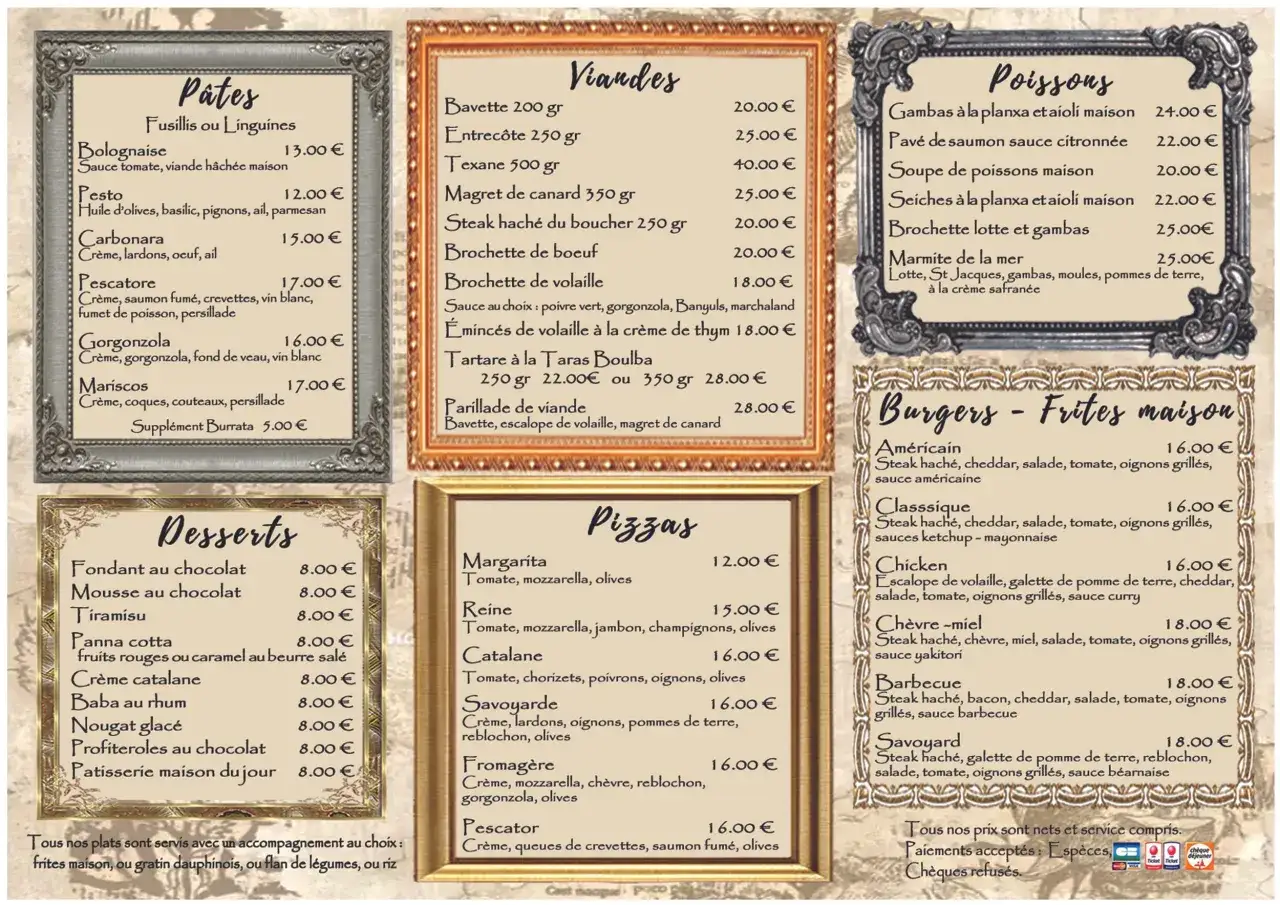 Pâtes
Fusillis ou Linguines
Bolognaise 13.00 €
Sauce tomate, viande hâchée maison
Pesto 12.00 €
Huile d'olives, basilic, pignons, ail, parmesan
Carbonara 15.00 €
Crème, lardons, oeuf, ail
Pescatore 17.00 €
Crème, saumon fumé, crevettes, vin blanc,
fumet de poisson, persillade
Gorgonzola 16.00 €
Crème, gorgonzola, fond de veau, vin blanc
Mariscos 17.00 €
Crème, coques, couteaux, persillade
Supplément Burrata 5.00 €
Desserts
Fondant au chocolat 8.00 €
Mousse au chocolat 8.00 €
Tiramisu 8.00 €
Panna cotta 8.00 €
fruits rouges ou caramel au beurre salé
Crème catalane 8.00 €
Baba au rhum 8.00 €
Nougat glacé 8.00 €
Profiteroles au chocolat 8.00 €
Patisserie maison du jour 8.00 €
Tous nos plats sont servis avec un accompagnement au choix :
frites maison, ou gratin dauphinois, ou flan de légumes, ou riz
Viandes
Bavette 200 gr 20.00 €
Entrecôte 250 gr 25.00 €
Texane 500 gr 40.00 €
Magret de canard 350 gr 25.00 €
Steak haché du boucher 250 gr 20.00 €
Brochette de boeuf 20.00 €
Brochette de volaille 18.00 €
Sauce au choix : poivre vert, gorgonzola, Banyuls, marchaland
Émincés de volaille à la crème de thym 18.00 €
Tartare à la Taras Boulba
250 gr 22.00€ ou 350 gr 28.00 €
Parillade de viande 28.00 €
Bavette, escalope de volaille, magret de canard
Pizzas
Margarita 12.00 €
Tomate, mozzarella, olives
Reine 15.00 €
Tomate, mozzarella, jambon, champignons, olives
Catalane 16.00 €
Tomate, chorizets, poivrons, oignons, olives
Savoyarde 16.00 €
Crème, lardons, oignons, pommes de terre,
reblochon, olives
Fromagère 16.00 €
Crème, mozzarella, chèvre, reblochon,
gorgonzola, olives
Pescator 16.00 €
Crème, queues de crevettes, saumon fumé, olives
Poissons
Gambas à la planxa et aioli maison 24.00 €
Pavé de saumon sauce citronnée 22.00 €
Soupe de poissons maison 20.00 €
Seiches à la planxa et aioli maison 22.00 €
Brochette lotte et gambas 25.00€
Marmite de la mer 25.00€
Lotte, St Jacques, gambas, moules, pommes de terre,
à la crème safranée
Burgers - Frites maison
Américain 16.00 €
Steak haché, cheddar, salade, tomate, oignons grillés,
sauce américaine
Classsique 16.00 €
Steak haché, cheddar, salade, tomate, oignons grillés,
sauces ketchup - mayonnaise
Chicken 16.00 €
Escalope de volaille, galette de pomme de terre, cheddar,
salade, tomate, oignons grillés, sauce curry
Chèvre -miel 18.00 €
Steak haché, chèvre, miel, salade, tomate, oignons grillés,
sauce yakitori
Barbecue 18.00 €
Steak haché, bacon, cheddar, salade, tomate, oignons
grillés, sauce barbecue
Savoyard 18.00 €
Steak haché, galette de pomme de terre, reblochon,
salade, tomate, oignons grillés, sauce béarnaise
Tous nos prix sont nets et service compris.
Paiements acceptés : Espèces,
CB
Ticket
Ticket
chèque
déjeuner
Chèques refusés.